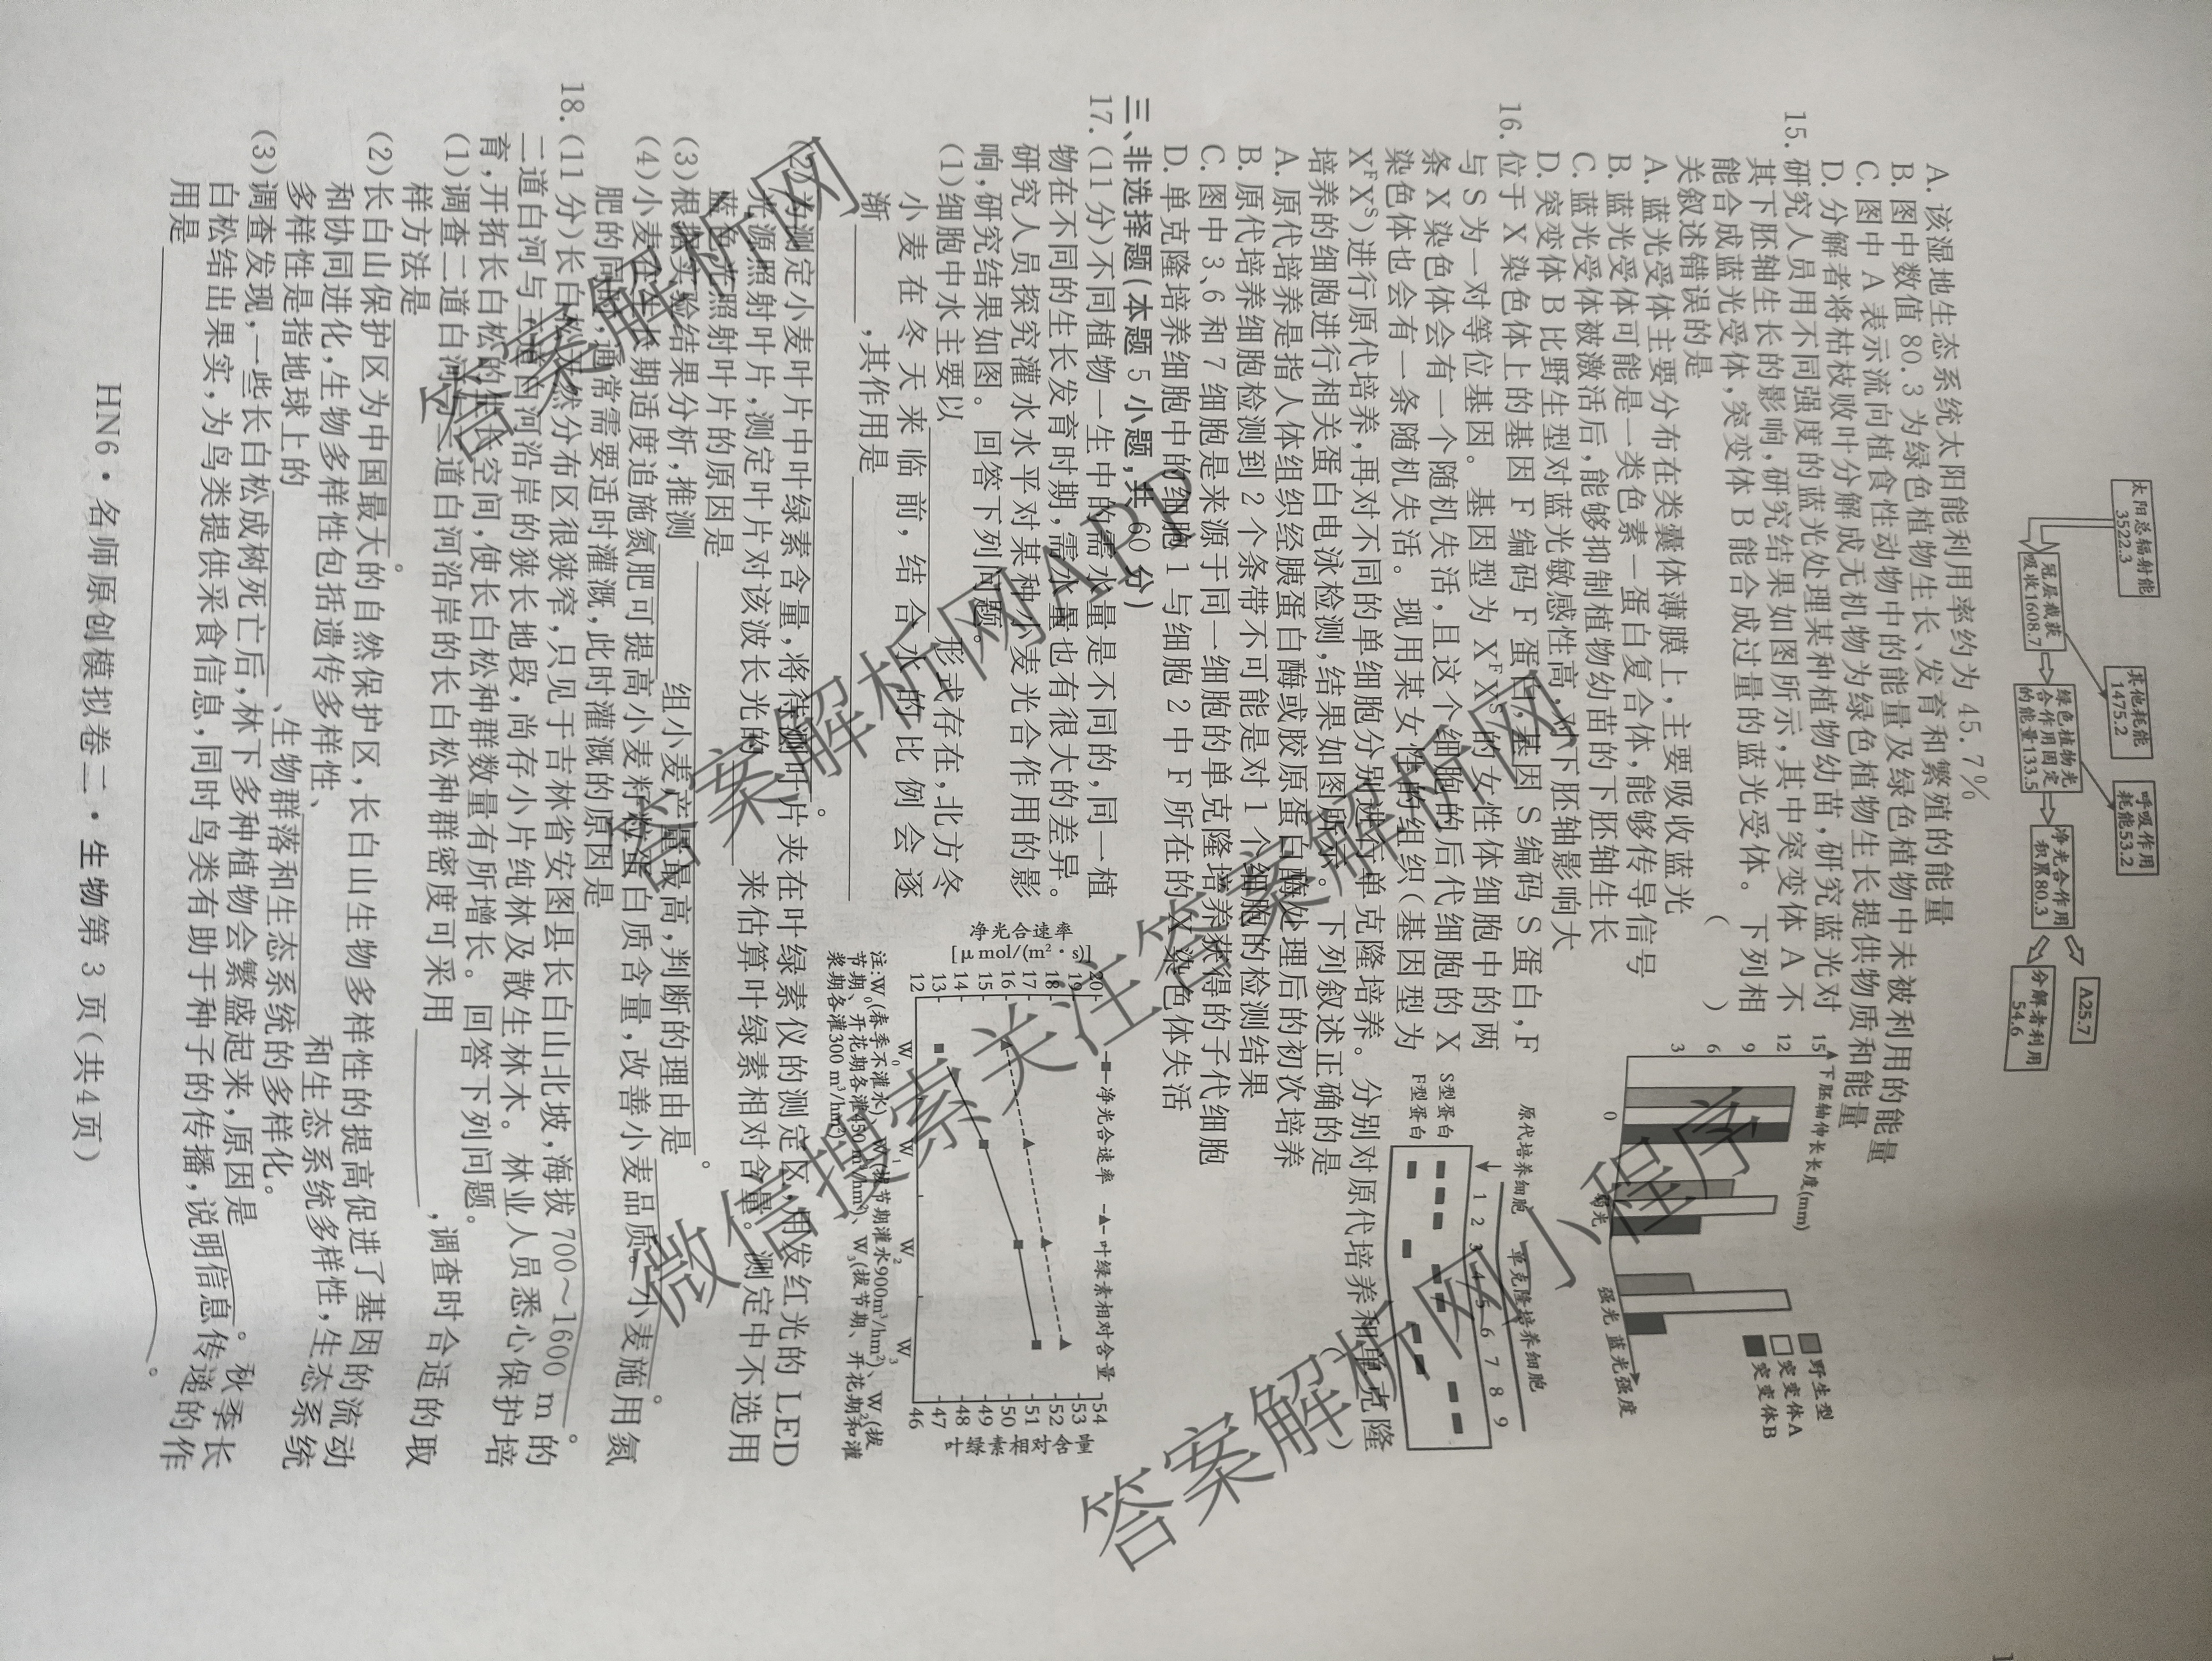 太阳总辐射能
3522.3
其他耗能
1475.2
呼吸作用
耗能53.2
冠层截获
吸收1608.7
绿色植物光
合作用固定
的能量133.5
净光合作用
积累80.3
A25.7
分解者利用
54.6
A. 该湿地生态系统太阳能利用率约为 45.7%
B. 图中数值 80.3 为绿色植物生长、发育和繁殖的能量
C. 图中 A 表示流向植食性动物中的能量及绿色植物中未被利用的能量
D. 分解者将枯枝败叶分解成无机物为绿色植物生长提供物质和能量
15. 研究人员用不同强度的蓝光处理某种植物幼苗,研究蓝光对
其下胚轴生长的影响,研究结果如图所示,其中突变体 A 不
能合成蓝光受体,突变体 B 能合成过量的蓝光受体。下列相
关叙述错误的是 ( )
A. 蓝光受体主要分布在类囊体薄膜上,主要吸收蓝光
B. 蓝光受体可能是一类色素—蛋白复合体,能够传导信号
C. 蓝光受体被激活后,能够抑制植物幼苗的下胚轴生长
D. 突变体 B 比野生型对蓝光敏感性高,对下胚轴影响大
下胚轴伸长长度(mm)
15
12
9
6
3
0
弱光
强光 蓝光强度
野生型
突变体A
突变体B
16. 位于 X 染色体上的基因 F 编码 F 蛋白,基因 S 编码 S 蛋白,F
与 S 为一对等位基因。基因型为 XᶠXˢ 的女性体细胞中的两
条 X 染色体会有一个随机失活,且这个细胞的后代细胞的 X
染色体也会有一条随机失活。现用某女性的组织(基因型为
XᶠXˢ)进行原代培养,再对不同的单细胞分别进行单克隆培养。分别对原代培养和单克隆
培养的细胞进行相关蛋白电泳检测,结果如图所示。下列叙述正确的是 ( )
A. 原代培养是指人体组织经胰蛋白酶或胶原蛋白酶处理后的初次培养
B. 原代培养细胞检测到 2 个条带不可能是对 1 个细胞的检测结果
C. 图中 3、6 和 7 细胞是来源于同一细胞的单克隆培养获得的子代细胞
D. 单克隆培养细胞中的细胞 1 与细胞 2 中 F 所在的 X 染色体失活
原代培养细胞 单克隆培养细胞
1 2 3 4 5 6 7 8 9
S型蛋白
F型蛋白
三、非选择题(本题 5 小题,共 60 分)
17. (11 分)不同植物一生中的需水量是不同的,同一植
物在不同的生长发育时期,需水量也有很大的差异。
研究人员探究灌水水平对某种小麦光合作用的影
响,研究结果如图。回答下列问题。
(1)细胞中水主要以 形式存在,北方冬
小麦在冬天来临前,结合水的比例会逐
渐 ,其作用是
。
净光合速率
[μmol/(m²·s)]
20
19
18
17
16
15
14
13
12
净光合速率 叶绿素相对含量
W₀ W₁ W₂ W₃
54
53
52
51
50
49
48
47
46
叶绿素相对含量
注:W₀(春季不灌水)、W₁(拔节期灌水900m³/hm²)、W₂(拔
节期、开花期各灌450 m³/hm²)、W₃(拔节期、开花期和灌
浆期各灌300 m³/hm²)
(2)为测定小麦叶片中叶绿素含量,将待测叶片夹在叶绿素仪的测定区,用发红光的 LED
光源照射叶片,测定叶片对该波长光的 来估算叶绿素相对含量。测定中不选用
蓝色光照射叶片的原因是 。
(3)根据实验结果分析,推测 组小麦产量最高,判断的理由是
。
(4)小麦生长期适度追施氮肥可提高小麦籽粒蛋白质含量,改善小麦品质。小麦施用氮
肥的同时,通常需要适时灌溉,此时灌溉的原因是 。
18. (11 分)长白松天然分布区很狭窄,只见于吉林省安图县长白山北坡,海拔 700~1600 m 的
二道白河与三道白河沿岸的狭长地段,尚存小片纯林及散生林木。林业人员悉心保护培
育,开拓长白松的生长空间,使长白松种群数量有所增长。回答下列问题。
(1)调查二道白河与三道白河沿岸的长白松种群密度可采用 ,调查时合适的取
样方法是 。
(2)长白山保护区为中国最大的自然保护区,长白山生物多样性的提高促进了基因的流动
和协同进化,生物多样性包括遗传多样性、 和生态系统多样性,生态系统
多样性是指地球上的 、生物群落和生态系统的多样化。
(3)调查发现,一些长白松成树死亡后,林下多种植物会繁盛起来,原因是
。秋季长
白松结出果实,为鸟类提供采食信息,同时鸟类有助于种子的传播,说明信息传递的作
用是 。
HN6·名师原创模拟卷二·生物第 3 页(共 4 页)
答案解析网
答案解析网APP
微信搜索关注答案解析网
答案解析网